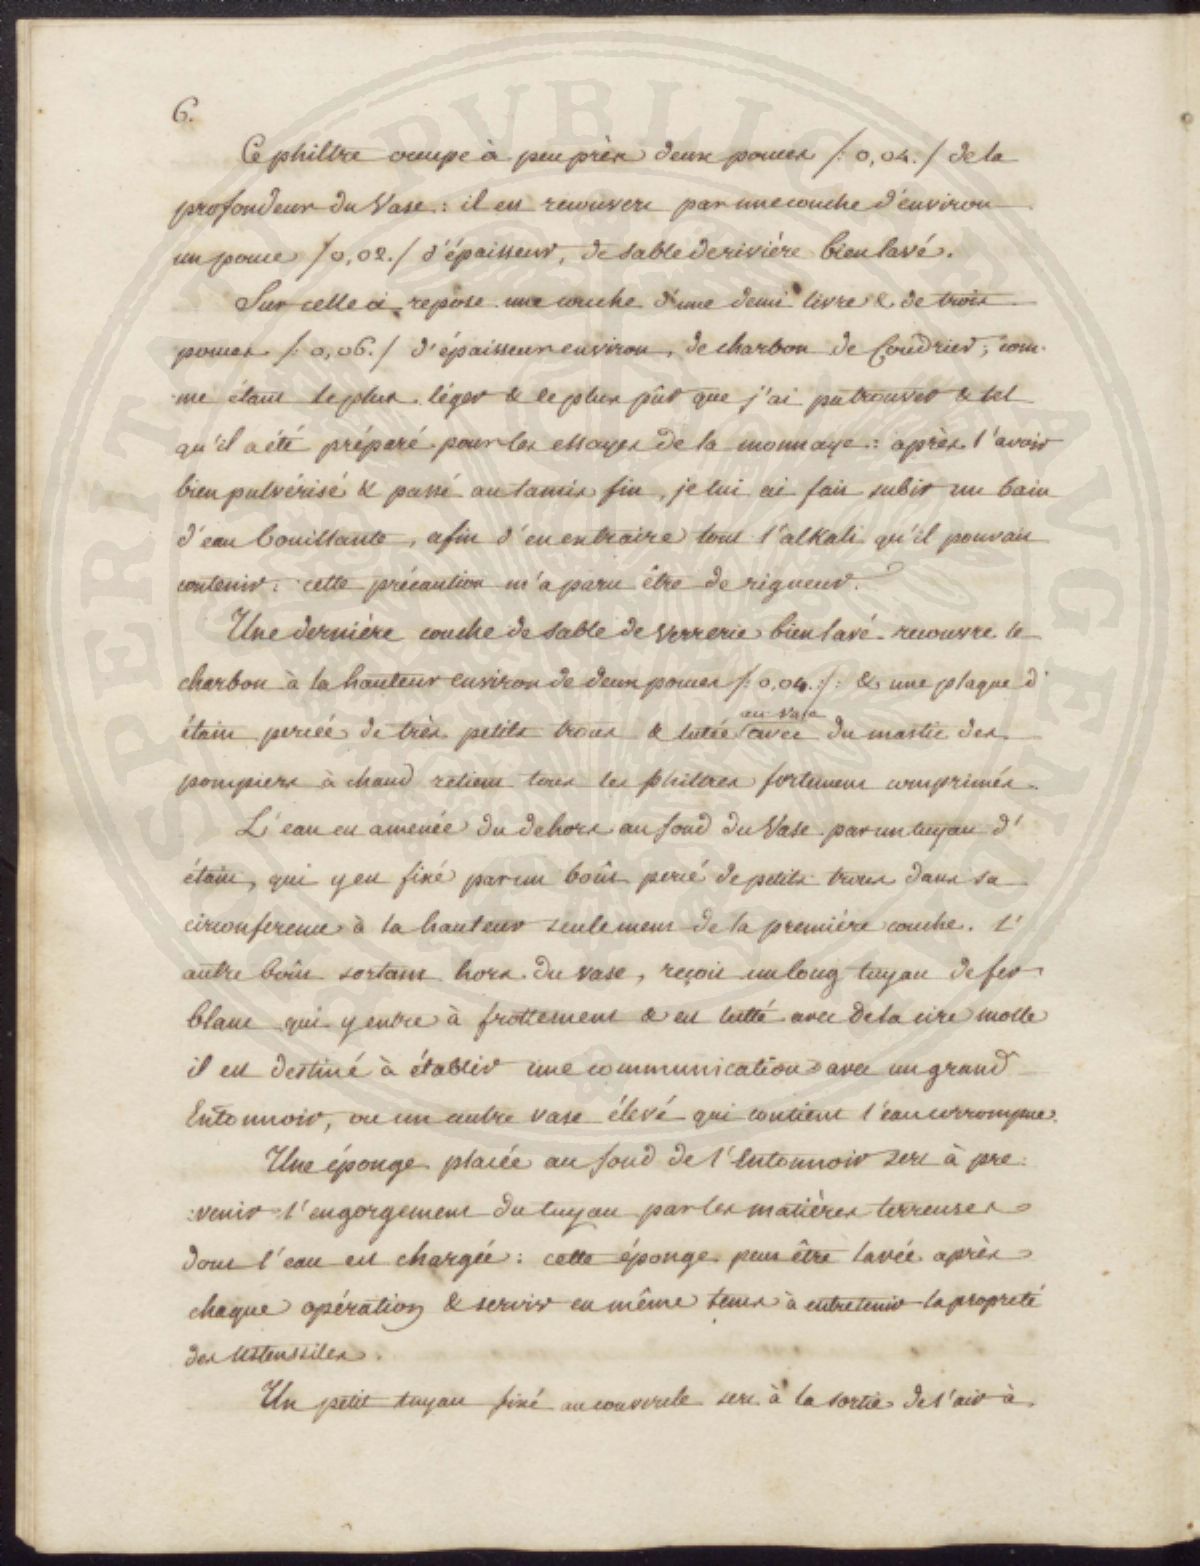 6.
Ce philtre occupe à peu près deux pouces /: 0,04. / de la
profondeur du Vase : il est recouvert par une couche d'environ
un pouce /0,02./ d'épaisseur, de sable de rivière bien lavé.
Sur celle ci repose une couche d'une demi livre & de trois
pouces /: 0,06. / d'épaisseur environ, de charbon de Coudrier ; com-
me étant le plus léger & le plus pûr que j'ai pu trouver & tel
qu'il a été préparé pour les essayes de la monnaye : après l'avoir
bien pulvérisé & passé au tamis fin, je lui ai fait subir un bain
d'eau bouillante, afin d'en extraire tout l'alkali qu'il pouvait
contenir : cette précaution m'a paru être de rigueur.
Une dernière couche de sable de verrerie bien lavé recouvre le
charbon à la hauteur environ de deux pouces /: 0,04. /: & une plaque d'
au vase
étain percée de très petits trous & lutée avec du mastic des
pompiers à chaud retient tous les philtres fortement comprimés.
L'eau est amenée du dehors au fond du Vase par un tuyau d'
étain, qui y est fixé par un boût percé de petits trous dans sa
circonference à la hauteur seulement de la première couche. L'
autre boût sortant hors du vase, reçoit un long tuyau de fer
blanc qui y entre à frottement & est lutté avec de la cire molle
il est destiné à établir une communication avec un grand
Entonnoir, ou un autre vase élevé qui contient l'eau corrompue.
Une éponge placée au fond de l'Entonnoir sert à pre
:venir l'engorgement du tuyau par les matières terreuses
dont l'eau est chargée : cette éponge peut être lavée après
chaque opération & servir en même tems à entretenir la propreté
des Ustensiles.
Un petit tuyau fixé au couvercle sert à la sortie de l'air à